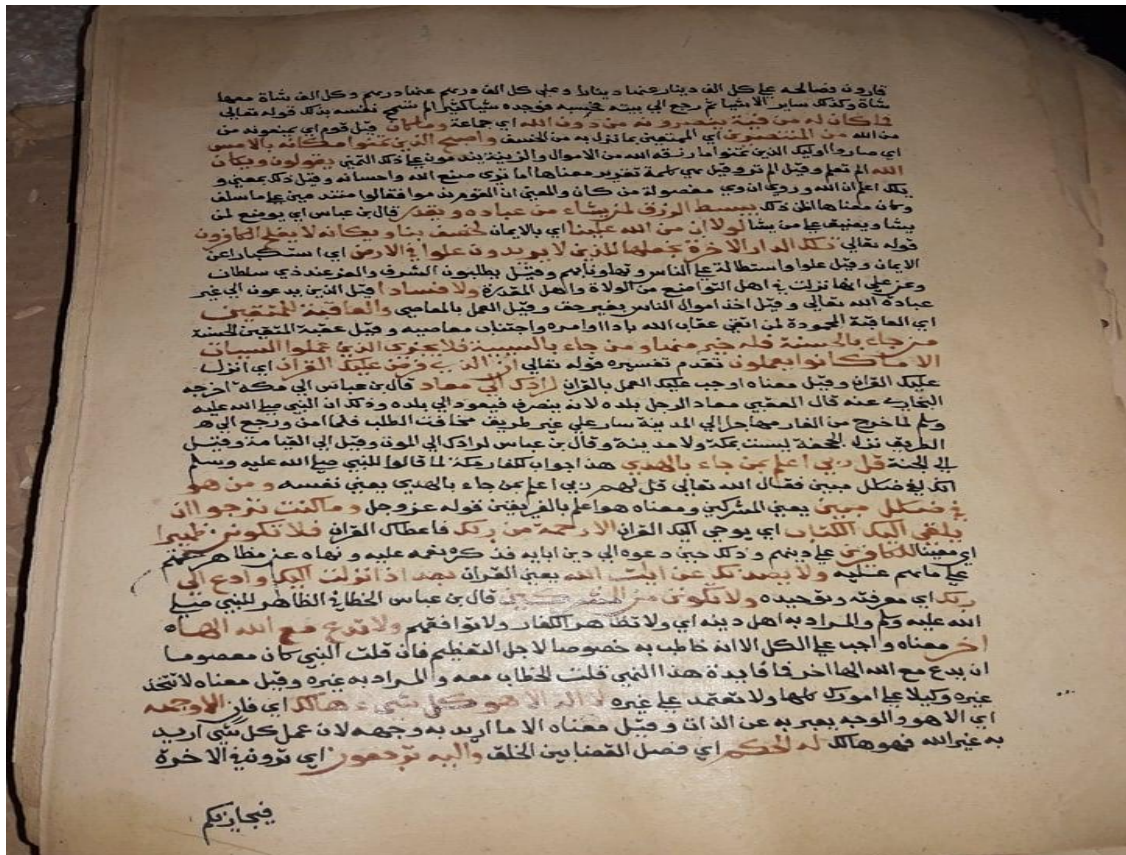 قارون فصالحه علي كل الف دينار عنها دينارا وعلي كل الف درهم عنها درهم وكل الف شاة معها
شاة وكذلك ساير الاشيا ثم رجع الي بيته فحسبه فوجده شيا كثيرا لم تسمح نفسه بذلك قوله تعالي
فما كان له من فية ينصرونه من دون الله اي جماعة وما كان قيل قوم اي يمنعونه من
من الله من المنتصرين اي الممتنعين بما نزل به من الخسف واصبح الذين تمنوا مكانه بالامس
اي صاروا اوليك الذين تمنوا ما رزقه الله من الاموال والزينة يندمون علي ذلك التمني يقولون ويكان
الله الم تعلم وقيل الم تر وقيل هي كلمة تقرير معناها اما تري صنع الله واحسانه وقيل ذلك بمعني و
يلك اعلم ان الله وروي ان وي مفصولة من كان والمعني ان القوم ندموا فقالوا متندمين علي ما سلف
وكان معناها اظن ذلك يبسط الرزق لمن يشاء من عباده ويقدر قال بن عباس اي يوسع لمن
يشا ويضيق علي من يشا لولا ان من الله علينا اي بالايمان لخسف بنا ويكانه لا يفلح الكافرون
قوله تعالي تلك الدار الاخرة نجعلها للذين لا يريدون علوا في الارض اي استكبارا عن
الايمان وقيل علوا واستطالة علي الناس وتهاونا بهم وقيل يطلبون الشرف والعز عند ذي سلطان
وعن علي انها نزلت في اهل التواضع من الولاة واهل المقدرة ولا فسادا قيل الذين يدعون الي غير
عبادة الله تعالي وقيل اخذ اموال الناس بغير حق وقيل العمل بالمعاصي والعاقبة للمتقين
اي العاقبة المحمودة لمن اتقي عقاب الله بادا اوامره واجتناب معاصيه وقيل عقبة المتقين الجنة
من جاء بالحسنة فله خير منها ومن جاء بالسيية فلا يجزي الذين عملوا السيات
الا ما كانوا يعملون تقدم تفسيره قوله تعالي ان الذي فرض عليك القران اي انزل
عليك القران وقيل معناه اوجب عليك العمل بالقران لرادك الي معاد قال بن عباس الي مكة اخرجه
البخاري عنه قال القتبي معاد الرجل بلده لانه ينصرف فيعود الي بلده وذلك ان النبي صلي الله عليه
وسلم لما خرج من الغار مهاجرا الي المدينة سار علي غير طريق مخافة الطلب فلما امن ورجع الي
الطريق نزل الجحفة ليست بمكة ولا مدينة وقال بن عباس لرادك الي الموت وقيل الي القيامة وقيل
الي الجنة قل ربي اعلم من جاء بالهدي هذا جواب لكفار مكة لما قالوا للنبي صلي الله عليه وسلم
انك لفي ضلل مبين فقال الله تعالي قل لهم ربي اعلم من جاء بالهدي يعني نفسه ومن هو
في ضلل مبين يعني المشركين ومعناه هو اعلم بالفريقين قوله عز وجل وما كنت ترجوا ان
يلقي اليك الكتاب اي يوحي اليك القران الا رحمة من ربك فاعطاك القران فلا تكونن ظهيرا
اي معينا للكافرين علي دينهم وذلك حين دعوه الي دين ابايه فذكره نعمه عليه ونهاه عن مظاهرتهم
علي ما هم عليه ولا يصدنك عن ايات الله يعني القران بعد اذ انزلت اليك وادع الي
ربك اي معرفته وتوحيده ولا تكونن من المشركين قال بن عباس الخطاب في الظاهر للنبي صلي
الله عليه وسلم والمراد به اهل دينه اي ولا تظاهر الكفار ولا توافقهم ولا تدع مع الله الها
اخر معناه واجب علي الكل الا انه خاطب به خصوصا لاجل التعظيم فان قلت النبي كان معصوما
ان يدع مع الله الها اخر فما فايدة هذا النهي قلت الخطاب معه والمراد به غيره وقيل معناه لا تتخذ
غيره وكيلا علي امورك كلها ولا تعتمد علي غيره لا اله الا هو كل شيء هالك اي فان الا وجهه
اي الا هو والوجه يعبر به عن الذات وقيل معناه الا ما اريد به وجهه لان عمل كل شي اريد
به غير الله فهو هالك له الحكم اي فصل القضا بين الخلق واليه ترجعون اي تردون في الاخرة
فيجازيكم